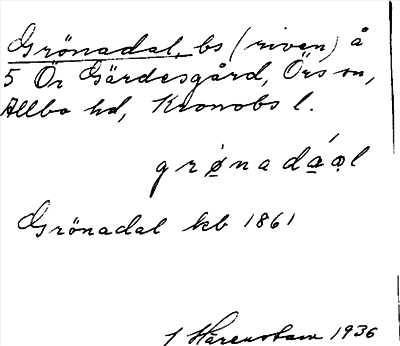 Grönadal, bs (riven) å
5 Ör Gärdesgård, Örs sn,
Allbo hd, Kronobs l.
grø̀nadáal
Grönadal kb 1861
1936